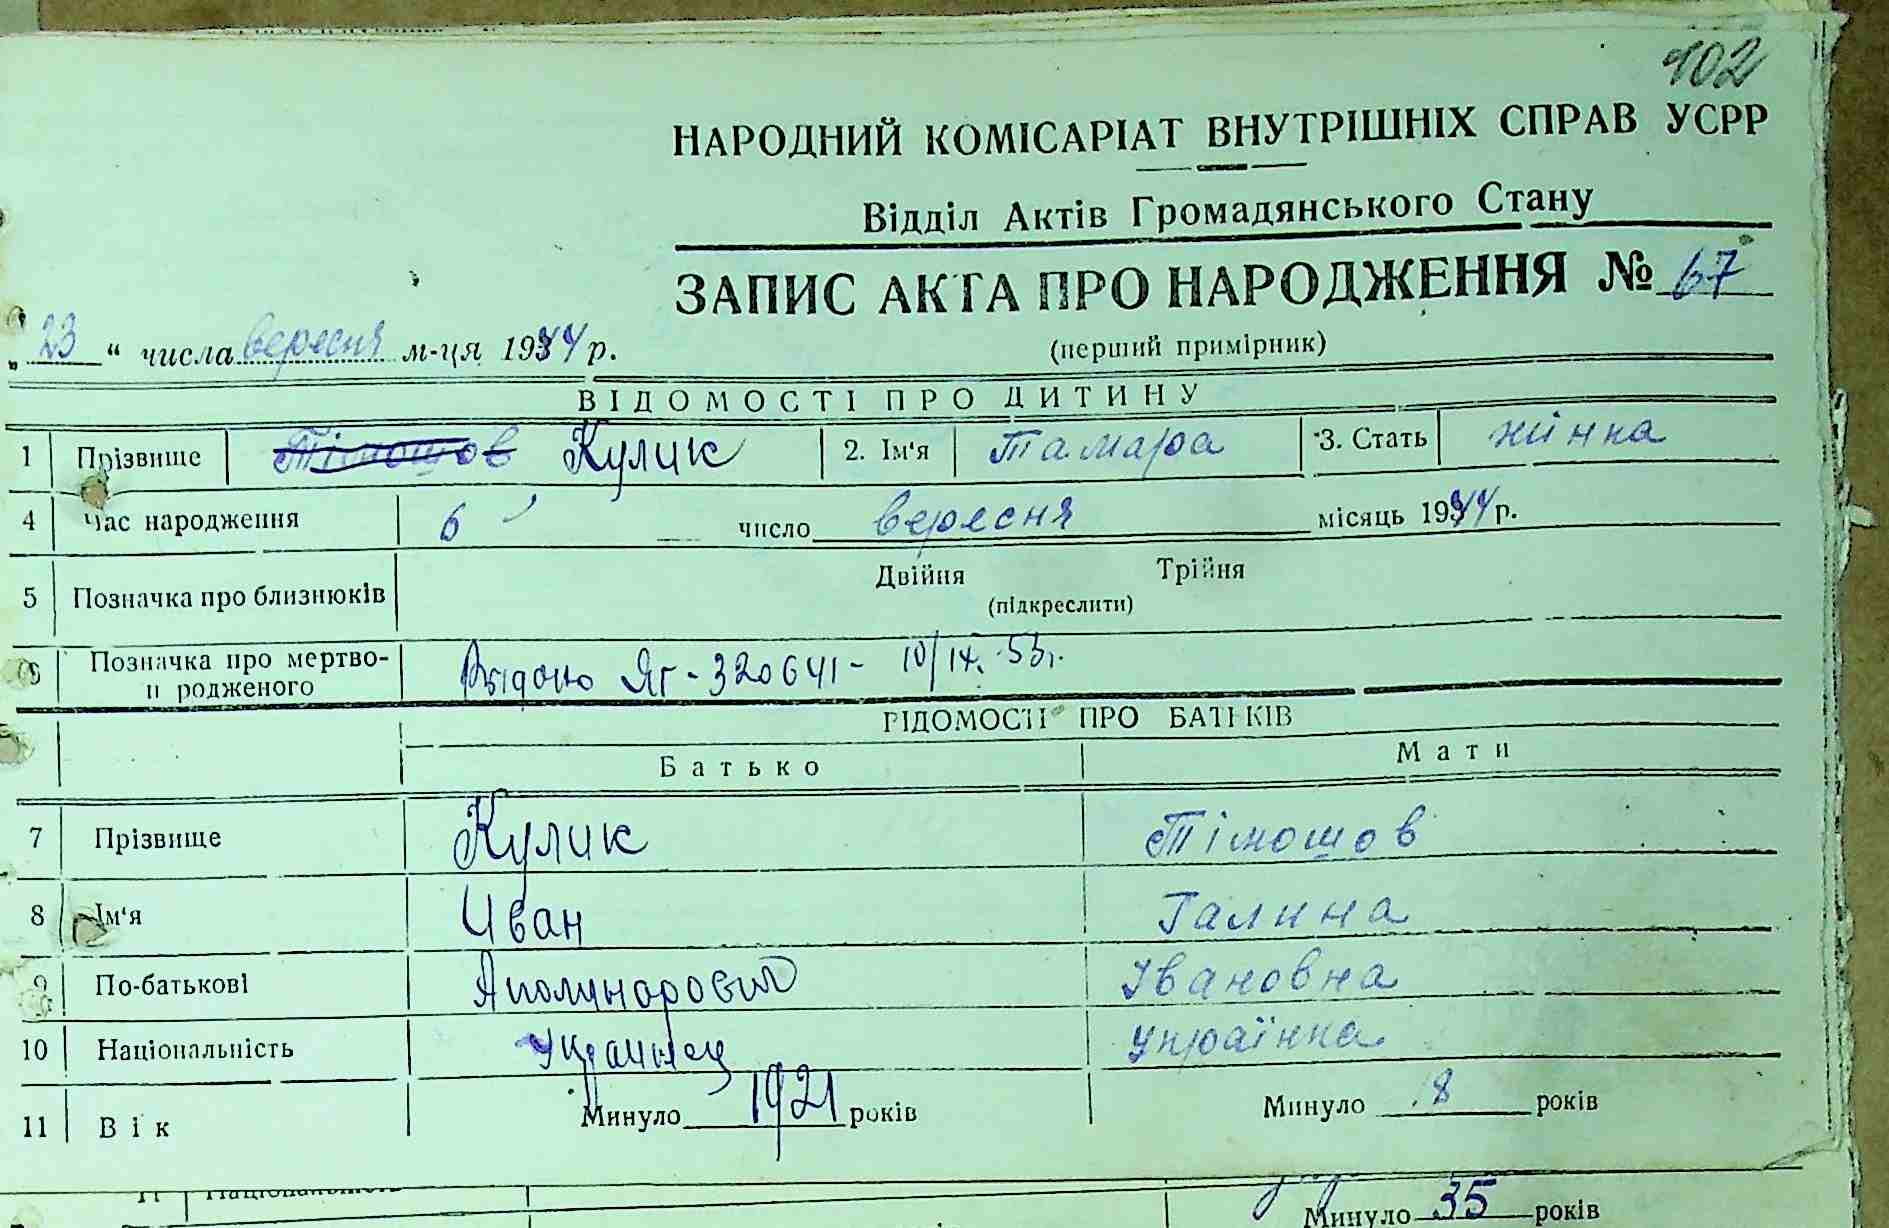 102
НАРОДНИЙ КОМІСАРІАТ ВНУТРІШНІХ СПРАВ УСРР
Відділ Актів Громадянського Стану
ЗАПИС АКТА ПРО НАРОДЖЕННЯ № 67
„ 23 “ числа вересня м-ця 1944 р.
(перший примірник)
ВІДОМОСТІ ПРО ДИТИНУ
1 Прізвище Тімошов Кулик 2. Ім'я Тамара 3. Стать жінка
4 Час народження 6 число вересня місяць 1944 р.
5 Позначка про близнюків Двійня Трійня
(підкреслити)
6 Позначка про мертво-
н родженого Видано ЯГ-320641- 10/IX. 53г.
ВІДОМОСТІ ПРО БАТЬКІВ
Батько Мати
7 Прізвище Кулик Тімошов
8 Ім'я Иван Галина
9 По-батькові Аполинарович Івановна
10 Національність Украинец українка
11 Вік Минуло 1921 років Минуло 18 років
Національність
Минуло 35 років